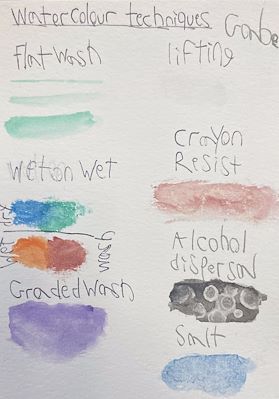 Watercolour techniques
Flat wash
lifting
Wet on Wet
Crayon
Resist
Wet dry
wash
Alcohol
dispersal
Graded Wash
Salt